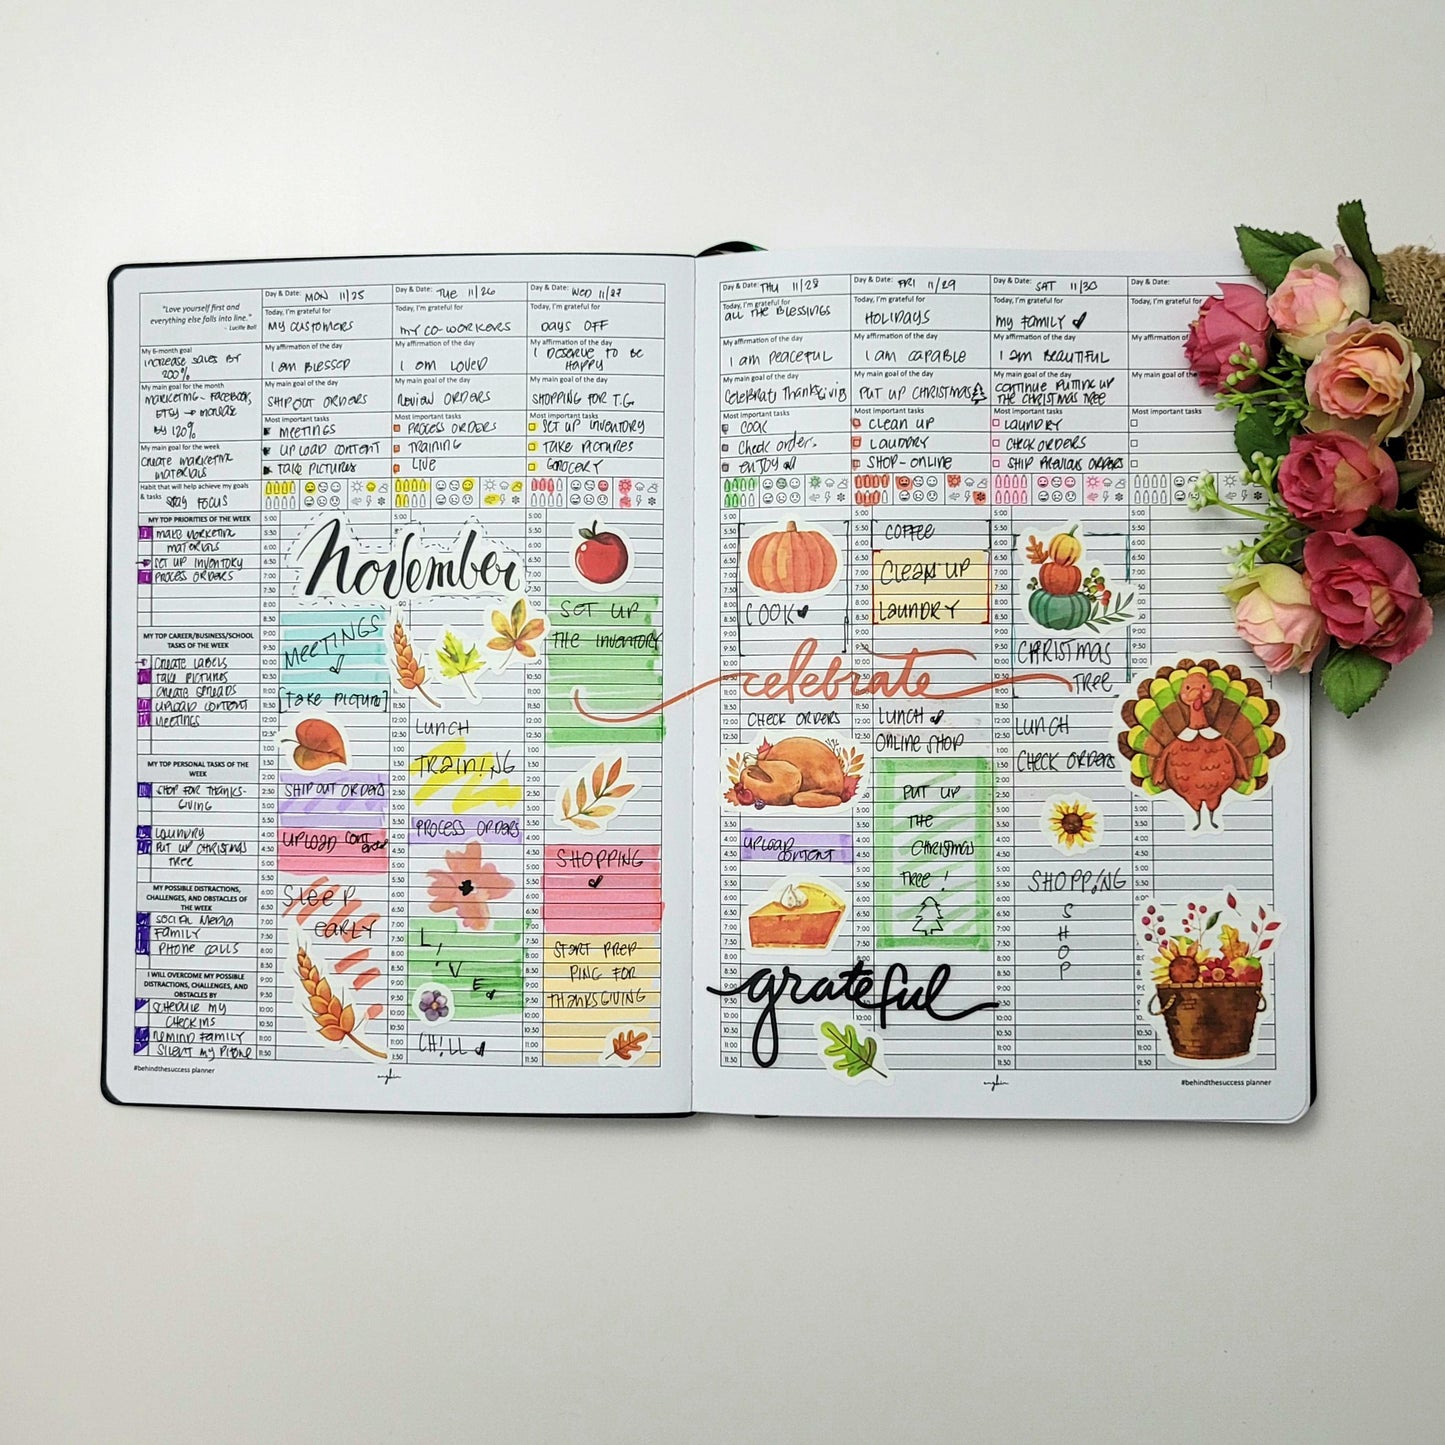 "Love yourself first and
everything else falls into line."
- Lucille Ball
My 6-month goal
INCREASE SALES BY
200%
My main goal for the month
MARKETING - FACEBOOK,
ETSY → INCREASE
BY 120%
My main goal for the week
CREATE MARKETING
MATERIALS
Habit that will help achieve my goals
& tasks STAY FOCUS
MY TOP PRIORITIES OF THE WEEK
MAKE MARKETING
MATERIALS
SET UP INVENTORY
PROCESS ORDERS
MY TOP CAREER/BUSINESS/SCHOOL
TASKS OF THE WEEK
CREATE LABELS
TAKE PICTURES
CREATE SPREADS
UPLOAD CONTENT
MEETINGS
MY TOP PERSONAL TASKS OF THE
WEEK
SHOP FOR THANKS-
GIVING
LAUNDRY
PUT UP CHRISTMAS
TREE
MY POSSIBLE DISTRACTIONS,
CHALLENGES, AND OBSTACLES OF
THE WEEK
SOCIAL MEDIA
FAMILY
PHONE CALLS
I WILL OVERCOME MY POSSIBLE
DISTRACTIONS, CHALLENGES, AND
OBSTACLES BY
SCHEDULE MY
CHECK INS
REMIND FAMILY
SILENT MY PHONE
#behindthesuccess planner
Day & Date: MON 11/25
Today, I'm grateful for
MY CUSTOMERS
My affirmation of the day
I AM BLESSED
My main goal of the day
SHIP OUT ORDERS
Most important tasks
MEETINGS
UPLOAD CONTENT
TAKE PICTURES
November
MEETINGS
[TAKE PICTURE]
SHIP OUT ORDERS
UPLOAD CONTENT
SLEEP
EARLY
Day & Date: TUE 11/26
Today, I'm grateful for
MY CO-WORKERS
My affirmation of the day
I AM LOVED
My main goal of the day
REVIEW ORDERS
Most important tasks
PROCESS ORDERS
TRAINING
LIVE
LUNCH
TRAIN!NG
PROCESS ORDERS
L!VE
CH!LL
Day & Date: WED 11/27
Today, I'm grateful for
DAYS OFF
My affirmation of the day
I DESERVE TO BE
HAPPY
My main goal of the day
SHOPPING FOR T.G.
Most important tasks
SET UP INVENTORY
TAKE PICTURES
GROCERY
SET UP
THE INVENTORY
SHOPPING
START PREP
PING FOR
THANKSGIVING
Day & Date: THU 11/28
Today, I'm grateful for
ALL THE BLESSINGS
My affirmation of the day
I AM PEACEFUL
My main goal of the day
CELEBRATE THANKSGIVING
Most important tasks
COOK
CHECK ORDERS
ENJOY
COOK
celebrate
CHECK ORDERS
UPLOAD
CONTENT
grateful
Day & Date: FRI 11/29
Today, I'm grateful for
HOLIDAYS
My affirmation of the day
I AM CAPABLE
My main goal of the day
PUT UP CHRISTMAS
Most important tasks
CLEAN UP
LAUNDRY
SHOP-ONLINE
COFFEE
CLEAN UP
LAUNDRY
LUNCH
ONLINE SHOP
PUT UP
THE
CHRISTMAS
TREE!
Day & Date: SAT 11/30
Today, I'm grateful for
MY FAMILY
My affirmation of the day
I AM BEAUTIFUL
My main goal of the day
CONTINUE PUTTING UP
THE CHRISTMAS TREE
Most important tasks
LAUNDRY
CHECK ORDERS
SHIP PREVIOUS ORDERS
CHRISTMAS
TREE
LUNCH
CHECK ORDERS
SHOPP!NG
S
H
O
P
Day & Date:
Today, I'm grateful for
My affirmation of
My main goal of the day
Most important tasks
#behindthesuccess planner